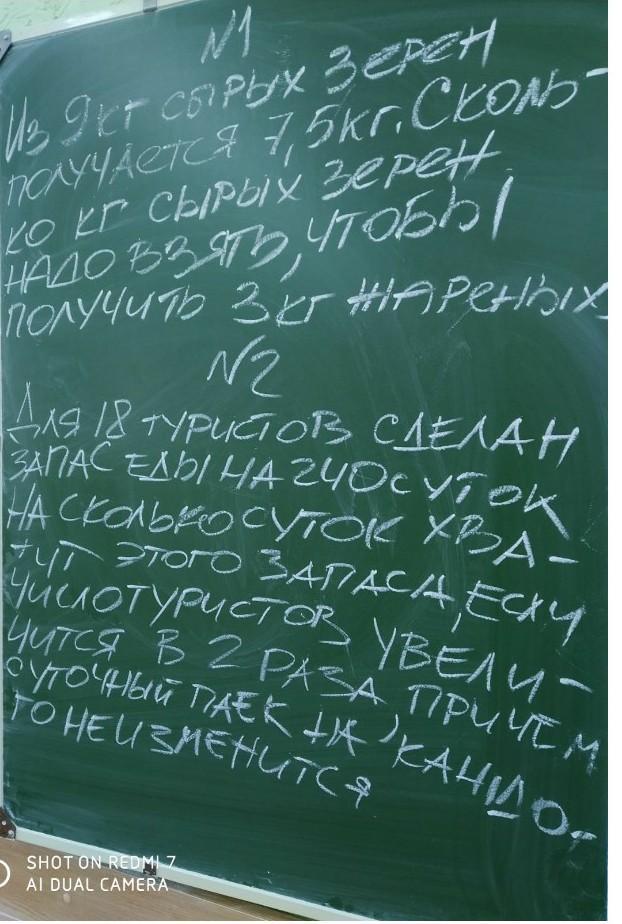 N1
Из 9 кг сырых зерен
получается 7,5 кг. Сколь-
ко кг сырых зерен
надо взять, чтобы
получить 3 кг жареных
N2
Для 18 туристов сделан
запас еды на 240 суток
на сколько суток хва-
тит этого запаса, если
число туристов увели-
чится в 2 раза причем
суточный паек на кандо-
го не изменится
SHOT ON REDMI 7
AI DUAL CAMERA